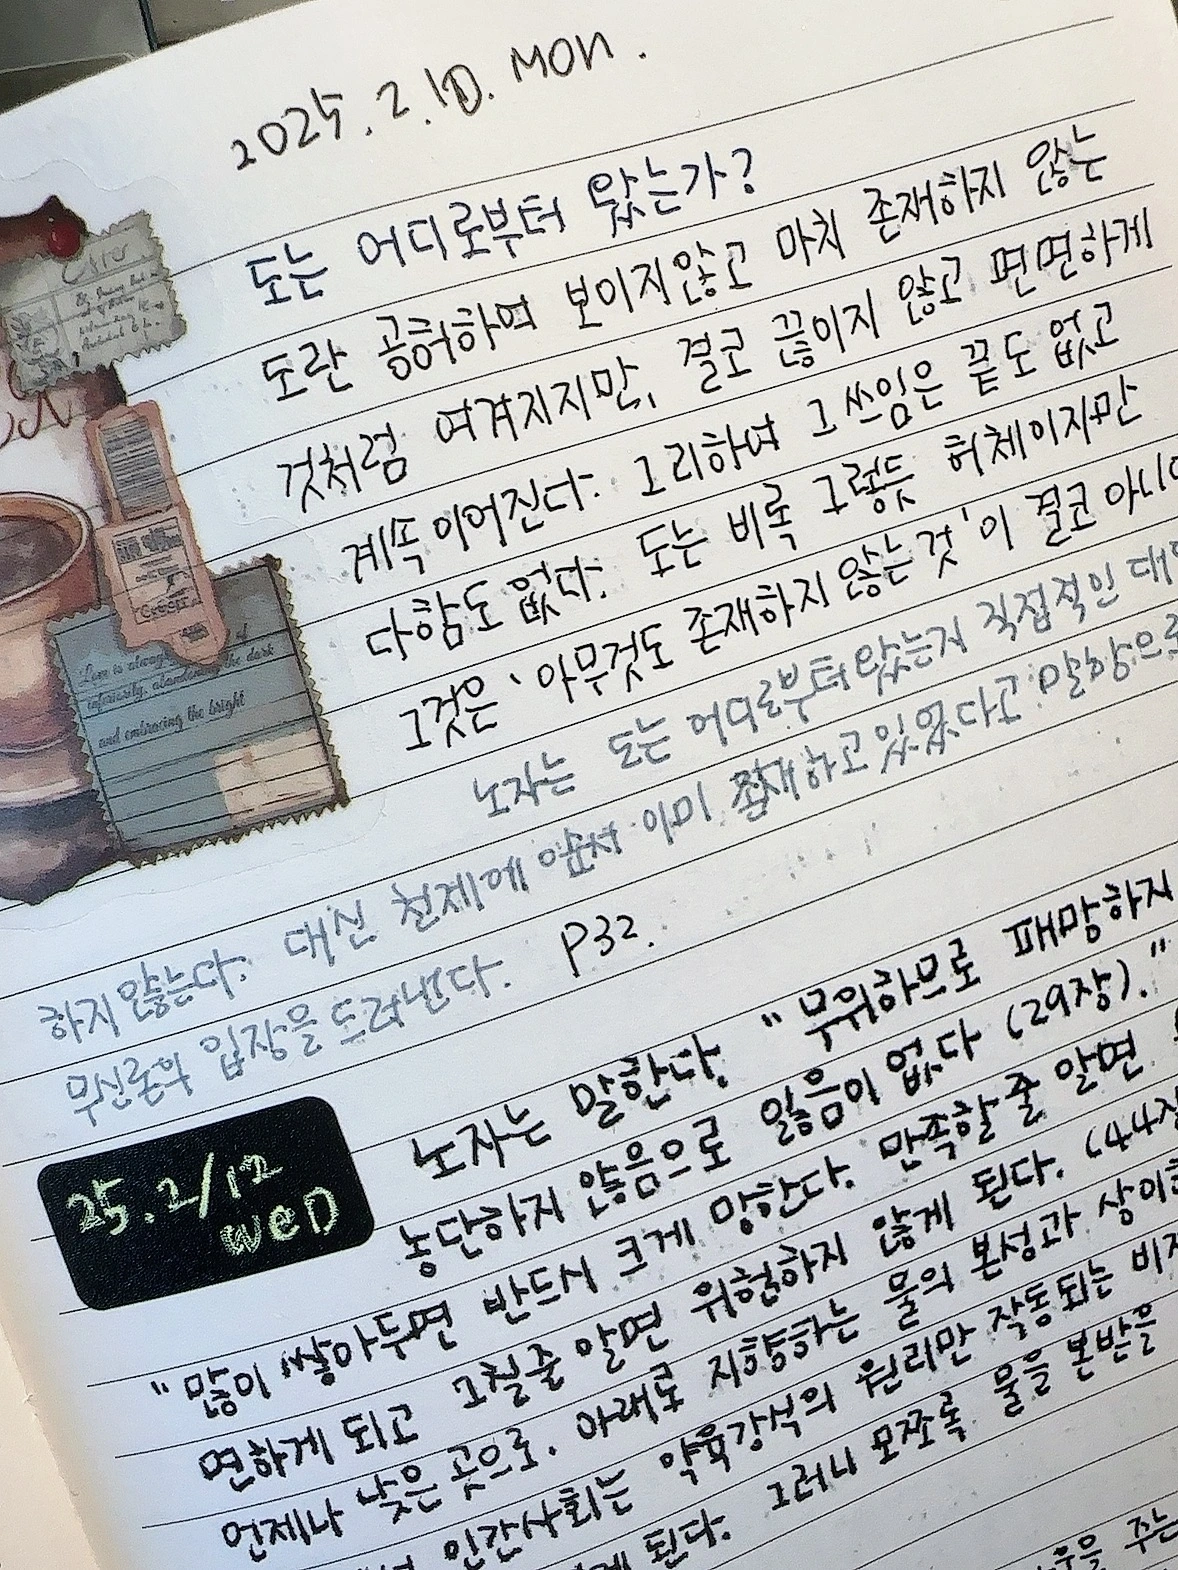 2025. 2. 10. MON.
도는 어디로부터 왔는가?
도란 공허하여 보이지않고 마치 존재하지 않는
것처럼 여겨지지만, 결코 끊이지 않고 면면하게
계속 이어진다. 그리하여 그 쓰임은 끝도 없고
다함도 없다. 도는 비록 그렇듯 허체이지만
그것은 '아무것도 존재하지 않는것'이 결코 아니
노자는 도는 어디로부터 왔는지 직접적인
하지 않는다. 대신 천제에 앞서 이미 존재하고 있었다고 말함으로
무신론의 입장을 드러낸다. P32.
25. 2/12
WeD
노자는 말한다. "무위하므로 패망하지
농단하지 않음으로 잃음이 없다 (29장)."
"많이 쌓아두면 반드시 크게 망한다. 만족할 줄 알면
면하게 되고 그칠줄 알면 위험하지 않게 된다. (44장
언제나 낮은 곳으로. 아래로 지향하는 물의 본성과 상이
인간사회는 약육강식의 원리만 작동되는
된다. 그러나 모쪼록 물을 본받을
주는
Love is always
the dark
and embracing the bright